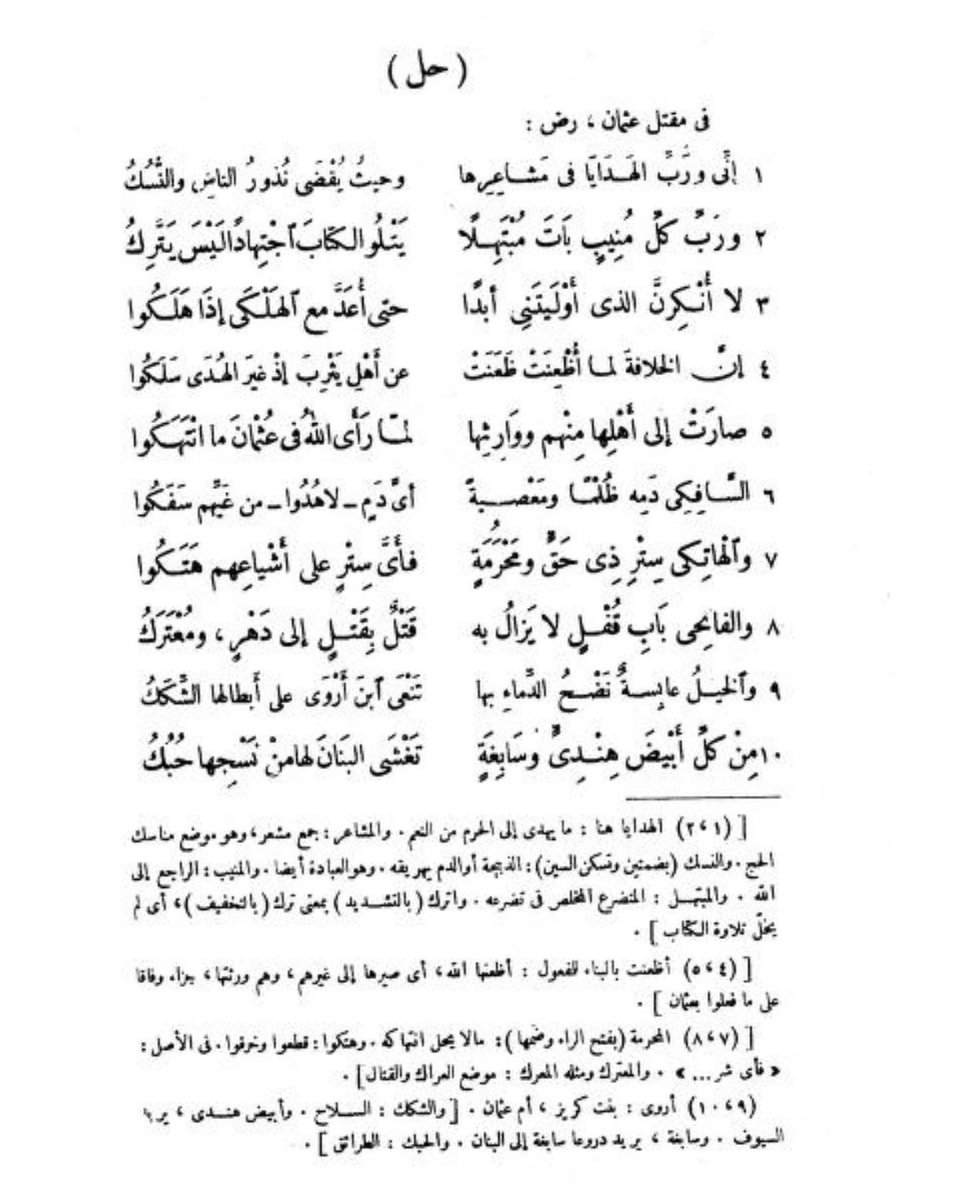 ( حل )
فى مقتل عثمان ، رض :
١ إنِّى ورَبِّ الهَدَايَا فى مَشاعِرِها وحيثُ يُقْضَى نُذورُ الناسِ والنُّسُكُ
٢ ورَبِّ كلِّ مُنِيبٍ بَاتَ مُبْتَهِلًا يَتْلُو الكتابَ ٱجْتِهادًا لَيْسَ يَتَّرِكُ
٣ لا أُنْكِرنَّ الذى أَوْلَيتَنِى أبدًا حتى أُعَدَّ مع ٱلهَلْكَى إذَا هَلَكُوا
٤ إنَّ الخلافةَ لما أُظْعِنَتْ ظَعَنَتْ عن أَهْلِ يَثْرِبَ إذْ غيرَ الهُدَى سَلَكُوا
٥ صارَتْ إلى أَهْلِها مِنْهم ووَارِثِها لمّا رَأَى اللهُ فى عُثْمانَ ما انْتَهَكُوا
٦ السَّافِكِى دَمِه ظُلْمًا ومَعْصِبةً أىَّ دَمٍ ـ لاهُدُوا ـ من غَيِّهم سَفَكُوا
٧ وٱلْهاتِكى سِتْرِ ذِى حَقٍّ ومَحْرُمَةٍ فأَىَّ سِتْرٍ على أَشْياعِهم هَتَكُوا
٨ والفاتِحى بَابِ قُفْلٍ لا يَزالُ به قَتْلٌ بِقَتْلٍ إلى دَهْرٍ ، ومُعْتَرَكُ
٩ وٱلخيلُ عابِسةٌ نَضْحُ الدِّماءِ بها تَنْعَى ٱبنَ أَرْوَى على أَبطالها الشِّكَكُ
١٠ مِنْ كلِّ أَبْيضَ هِنْدِىٍّ وسَابِغَةٍ تَغْشَى البَنَانَ لها منْ نَسْجِها حُبُكُ
[ (١،٢) الهدايا هنا : ما يهدى إلى الحرم من النعم . والمشاعر : جمع مشعر، وهو موضع مناسك
الحج . والنسك (بضمتين وتسكن السين) : الذبيحة أو الدم يهريقه . وهو العبادة أيضا . والمنيب : الراجع إلى
الله . والمبتهل : المتضرع المخلص فى تضرعه . واترك (بالتشديد) بمعنى ترك (بالتخفيف)، أى لم
يخلّ تلاوة الكتاب ] .
[ (٤،٥) أظعنت بالبناء للفعول : أظعنها الله، أى صيرها إلى غيرهم، وهم ورثتها، جزاء وفاقا
على ما فعلوا بعثمان ] .
[ (٧،٨) المحرمة (بفتح الراء وضمها) : مالا يحل انتهاكه . وهتكوا : قطعوا وخرقوا . فى الأصل :
« فأى شر ... » . والمعترك ومثله المعرك : موضع العراك والقتال] .
(٩،١٠) أروى : بنت كريز ، أم عثمان . [والشكك : السلاح . وأبيض هندى ، يريد
السيوف . وسابغة ، يريد دروعا سابغة إلى البنان . والحبك : الطرائق ] .